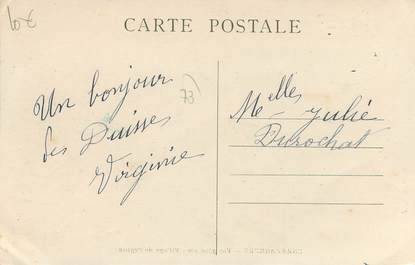 10€
CARTE POSTALE
73
Un bonjour
des Duisses
Virginie
Melles Julie
Durochat